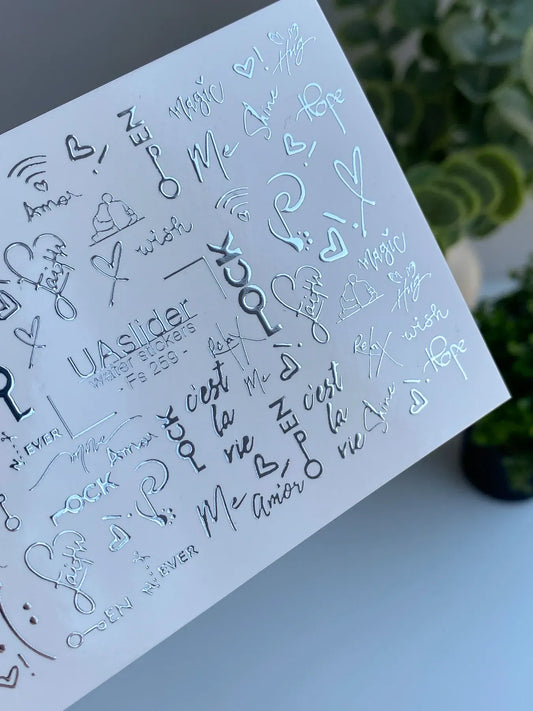 Magic
Hug
Shine
Hope
OPEN
Me
Amor
wish
Faith
ROCK
Faith
Magic
Hug
wish
Hope
UAslider
water stickers
Fs 259 -
Relax
Relax
Me
c'est
la
vie
OPEN
c'est
la
vie
Shine
NEVER
ROCK
Amor
ROCK
Me
Amor
Faith
NEVER
OPEN